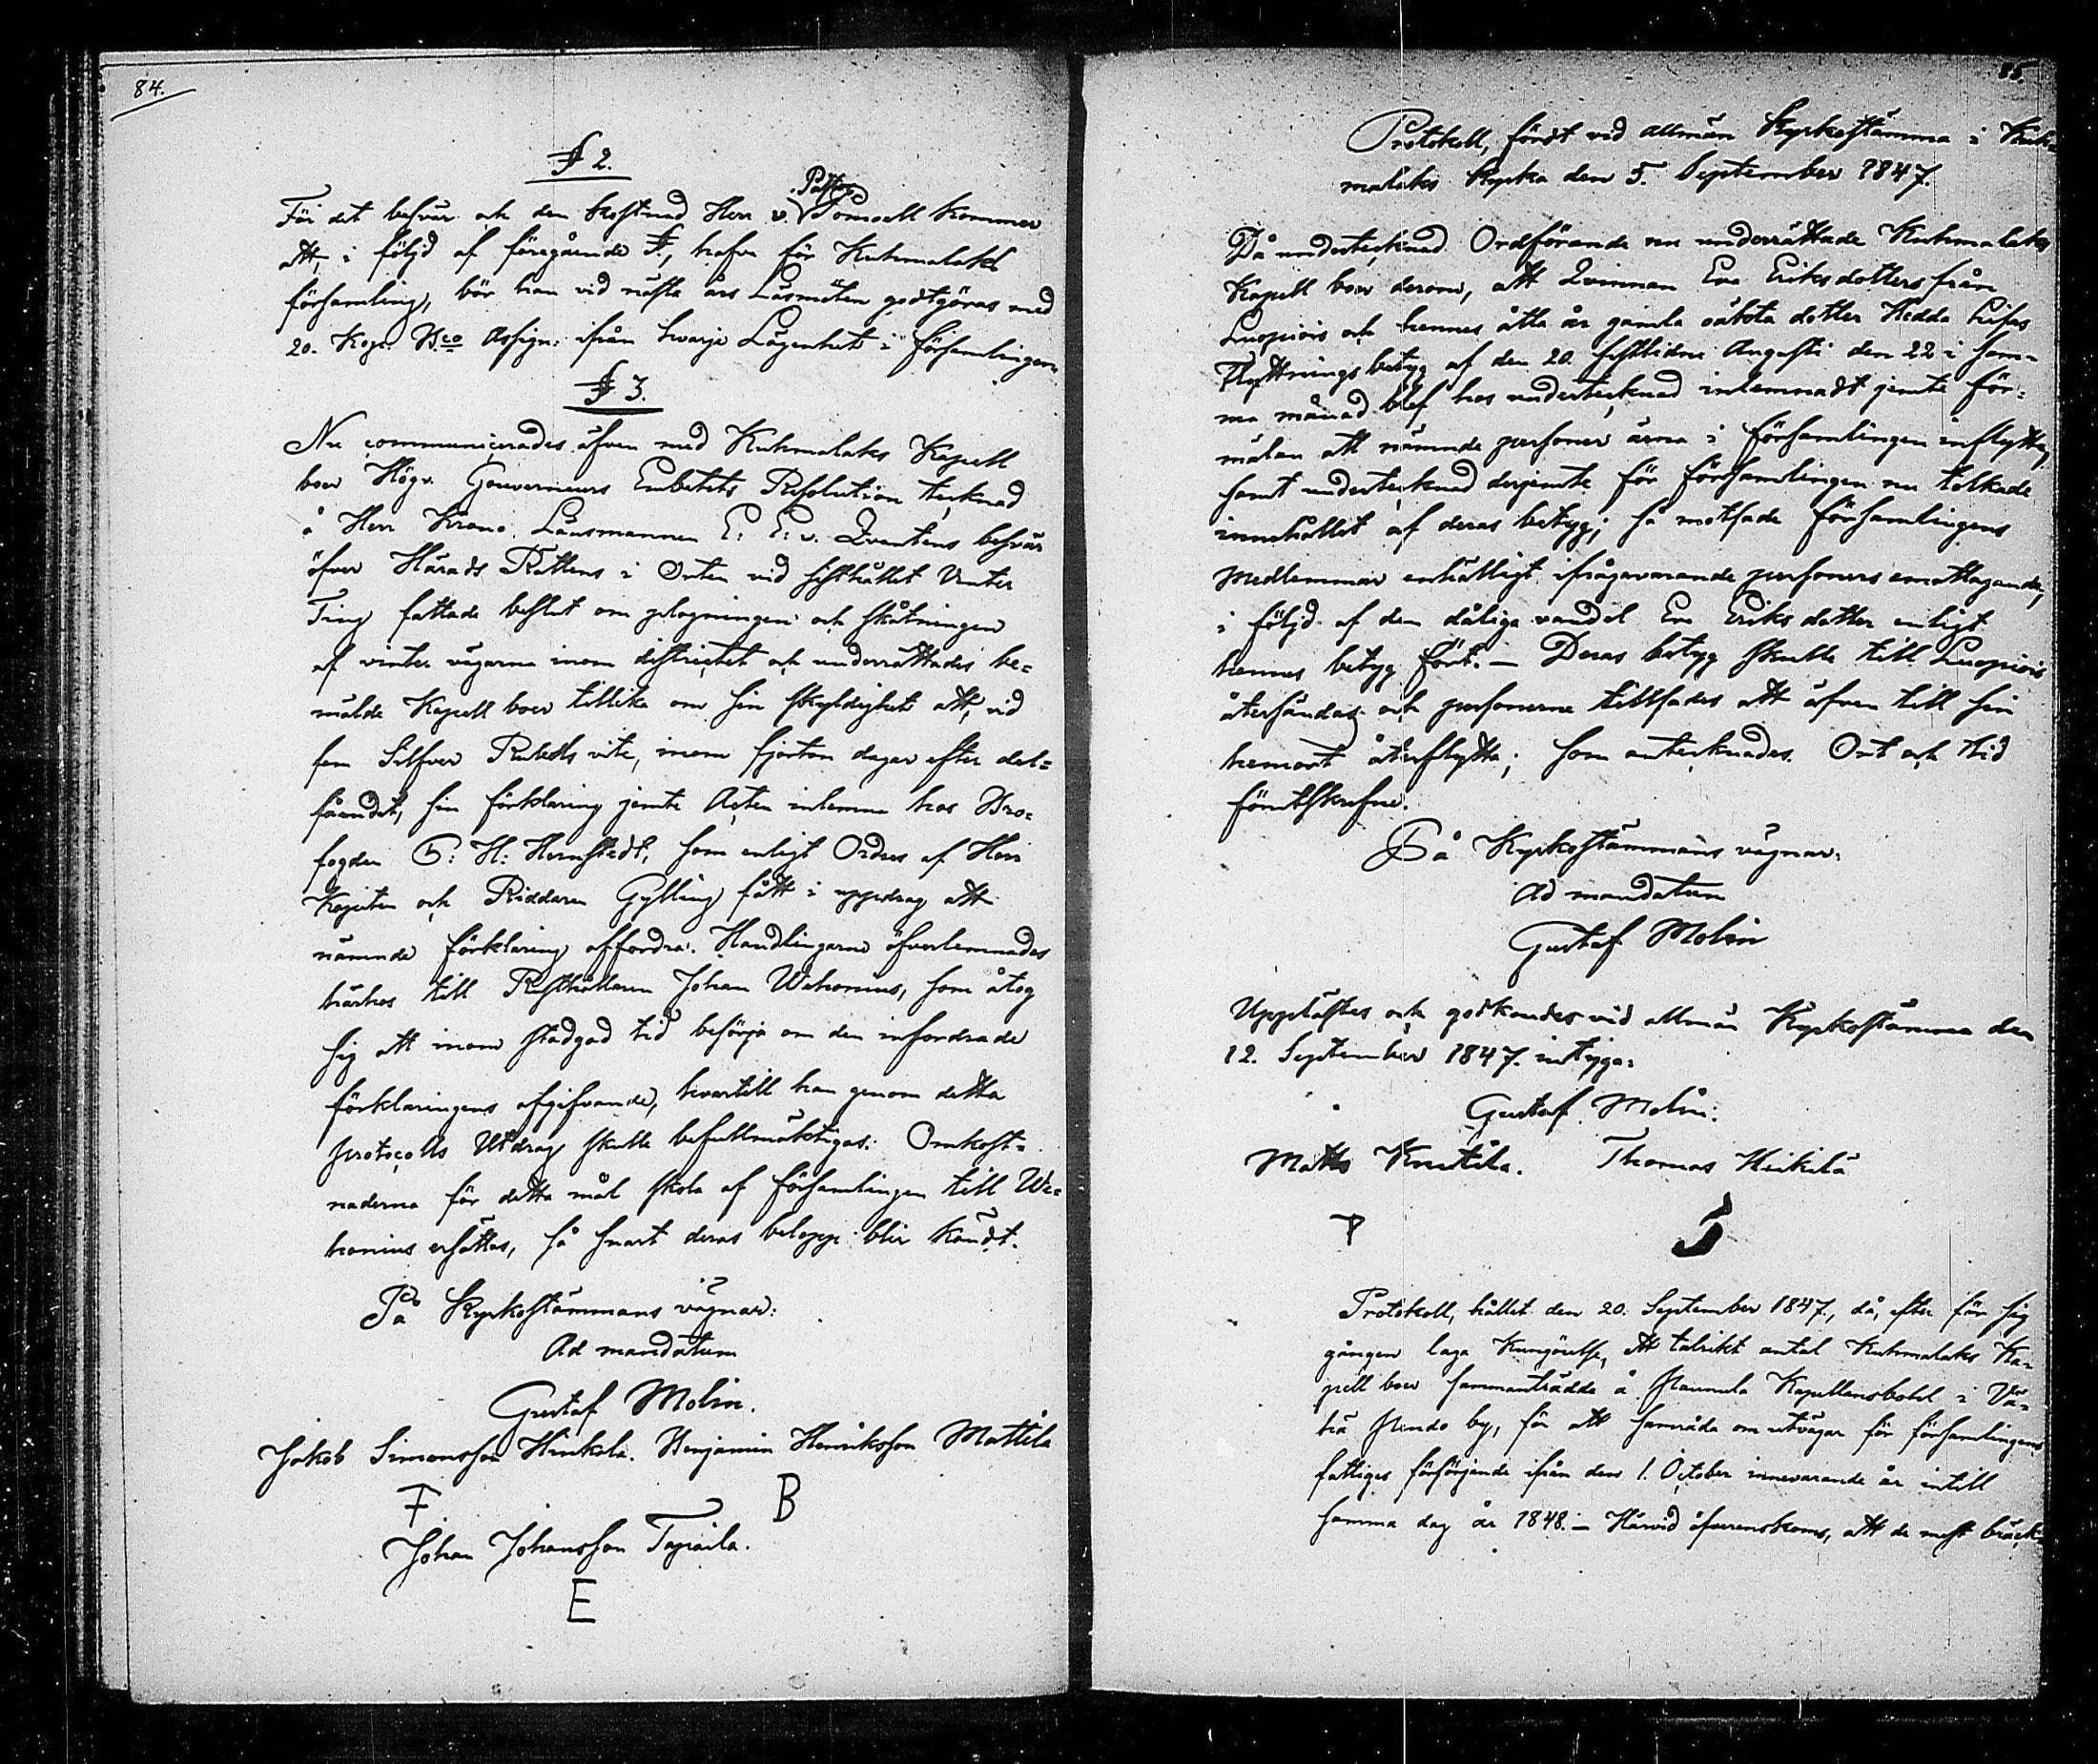 84.
§ 2.
Pastor
För det besvär och den kostnad Herr v. Pomoell kommer
att, i följd af föregående §, hafva för Kuhmalaks
församling, bör han vid nästa års Läsmöten godtgöras med
20. Kop. Bco Assign: ifrån hwarje Lägenhet i församlingen.
§ 3.
Nu communicerades äfven med Kuhmalaks Kapell
boer Högv. Gouverneurs Embetets Resolution tecknad
å Herr Krono Länsmannen E: E: v. Qvantens besvär
öfver Härads Rättens i Orten vid sisthållet Vinter
Ting fattade beslut om plogningen och skåtningen
af vinter vägarna inom districtet och underrättades be-
mälde Kapell boer tillika om sin skyldighet att, vid
fem Silfver Rubels vite, inom fjorton dagar efter del-
fåendet, sin förklaring jemte Acten inlemna hos Bro-
fogden G: H: Hernstedt, som enligt Ordres af Herr
Kapiten och Riddaren Gylling fått i uppdrag att
nämnde förklaring affordra. Handlingarne öfverlemnades
härhos till Rusthållaren Johan Wahonius, som åtog
sig att inom stadgad tid besörja om den infordrade
förklaringens afgifvande, hvartill han genom detta
protocolls Utdrag skulle befullmäktigas. Omkost-
naderna för detta mål skola af församlingen till Wa-
honius ersättas, så snart deras belopp blir kändt.
På Kyrkostämmans vägnar:
Ad mandatum
Gustaf Molin.
Jakob Simonsson Hinkola. Benjamin Henriksson Mattila
F B
Johan Johansson Tapaila.
E
85.
Protokoll, fördt vid allmän Kyrkostämma i Kuh-
malaks Kyrka den 5. September 1847.
Då undertecknad Ordförande nu underrättade Kuhmalaks
Kapell boer derom, att Qvinnan Eva Eriksdotters från
Luopiois och hennes åtta år gamla oäkta dotter Hedda Lisas
Flyttningsbetyg af den 20. sistlidne Augusti den 22 i sam-
ma månad blef hos undertecknad inlemnadt jemte för-
mälan att nämnde personer ärna i församlingen inflytta,
samt undertecknad derjemte för församlingen nu tolkade
innehållet af deras betyg; så motsade församlingens
Medlemmar enhälligt ifrågavarande personers emottagande,
i följd af den dåliga vandel Eva Eriksdotter enligt
hennes betyg fört. — Deras betyg skulle till Luopiois
återsändas och personerne tillsades att äfven till sin
hemort återflytta; som antecknades. Ort och tid
förutskrefne.
På Kyrkostämmans vägnar:
Ad mandatum
Gustaf Molin
Upplästes och godkändes vid allmän Kyrkostämma den
12. September 1847. intyga:
Gustaf Molin.
Matts Knutila. Thomas Heikilä
P
Protokoll, hållet den 20. September 1847, då, efter för sig
gången laga Kungörelse, ett talrikt antal Kuhmalaks Ka-
pell boer sammanträdde å Haumula Kapellansbohl i Vä-
hä Pendo by, för att samråda om utvägar för församlingens
fattiges försörjande ifrån den 1. October innevarande år intill
samma dag år 1848. — Härvid öfverenskoms, att de mest bräck-